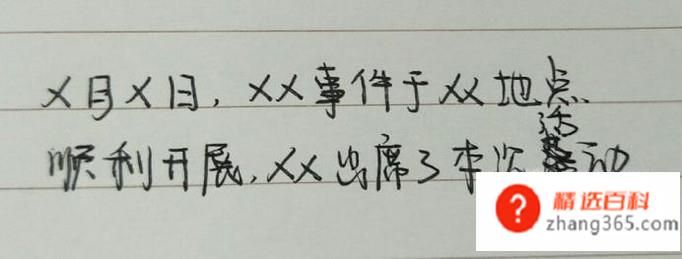 X月X日，XX事件于XX地点
顺利开展，XX出席了本次活动
精选百科
zhang365.com